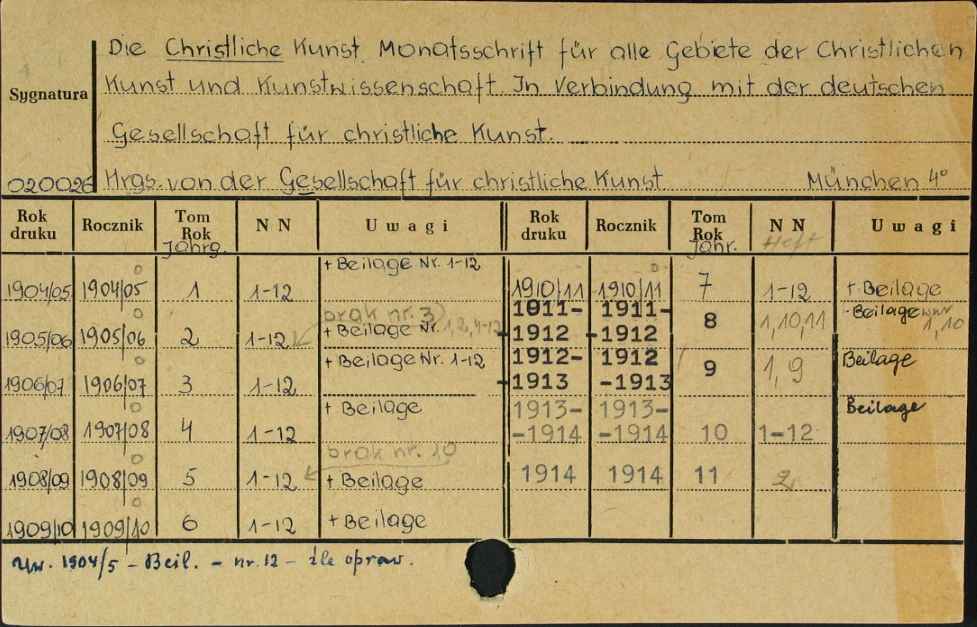 Die Christliche Kunst. Monatsschrift für alle Gebiete der Christlichen
Kunst und Kunstwissenschaft. In Verbindung mit der deutschen
Gesellschaft für christliche Kunst.
Sygnatura
020026 Hrgs. von der Gesellschaft für christliche Kunst München 4°
Rok druku Rocznik Tom Rok Jahrg. NN Uwagi Rok druku Rocznik Tom Rok Jahr. NN Heft Uwagi
1904/05 1904/05 1 1-12 + Beilage Nr. 1-12 1910/11 1910/11 7 1-12 + Beilage
1905/06 1905/06 2 1-12 brak nr. 3 + Beilage Nr. 1,2,4-12 1911-1912 1911-1912 8 1,10,11 Beilage 1,10
1906/07 1906/07 3 1-12 + Beilage Nr. 1-12 1912-1913 1912-1913 9 1,9 Beilage
1907/08 1907/08 4 1-12 + Beilage 1913-1914 1913-1914 10 1-12 Beilage
1908/09 1908/09 5 1-12 brak nr. 10 + Beilage 1914 1914 11 2
1909/10 1909/10 6 1-12 + Beilage
Uw. 1904/5 - Beil. - nr. 12 - źle opraw.